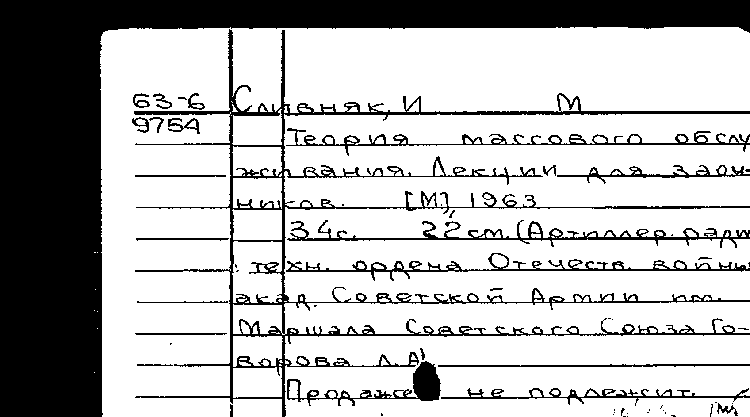 63-6 Сливняк, И М
9754
Теория массового обслу
живания. Лекции для заоч
ников. [М], 1963
34с. 22см. (Артиллер. ради
техн. ордена Отечеств. войны
акад. Советской Армии им.
Маршала Советского Союза Го-
ворова Л.А)
Продаже не подлежит.